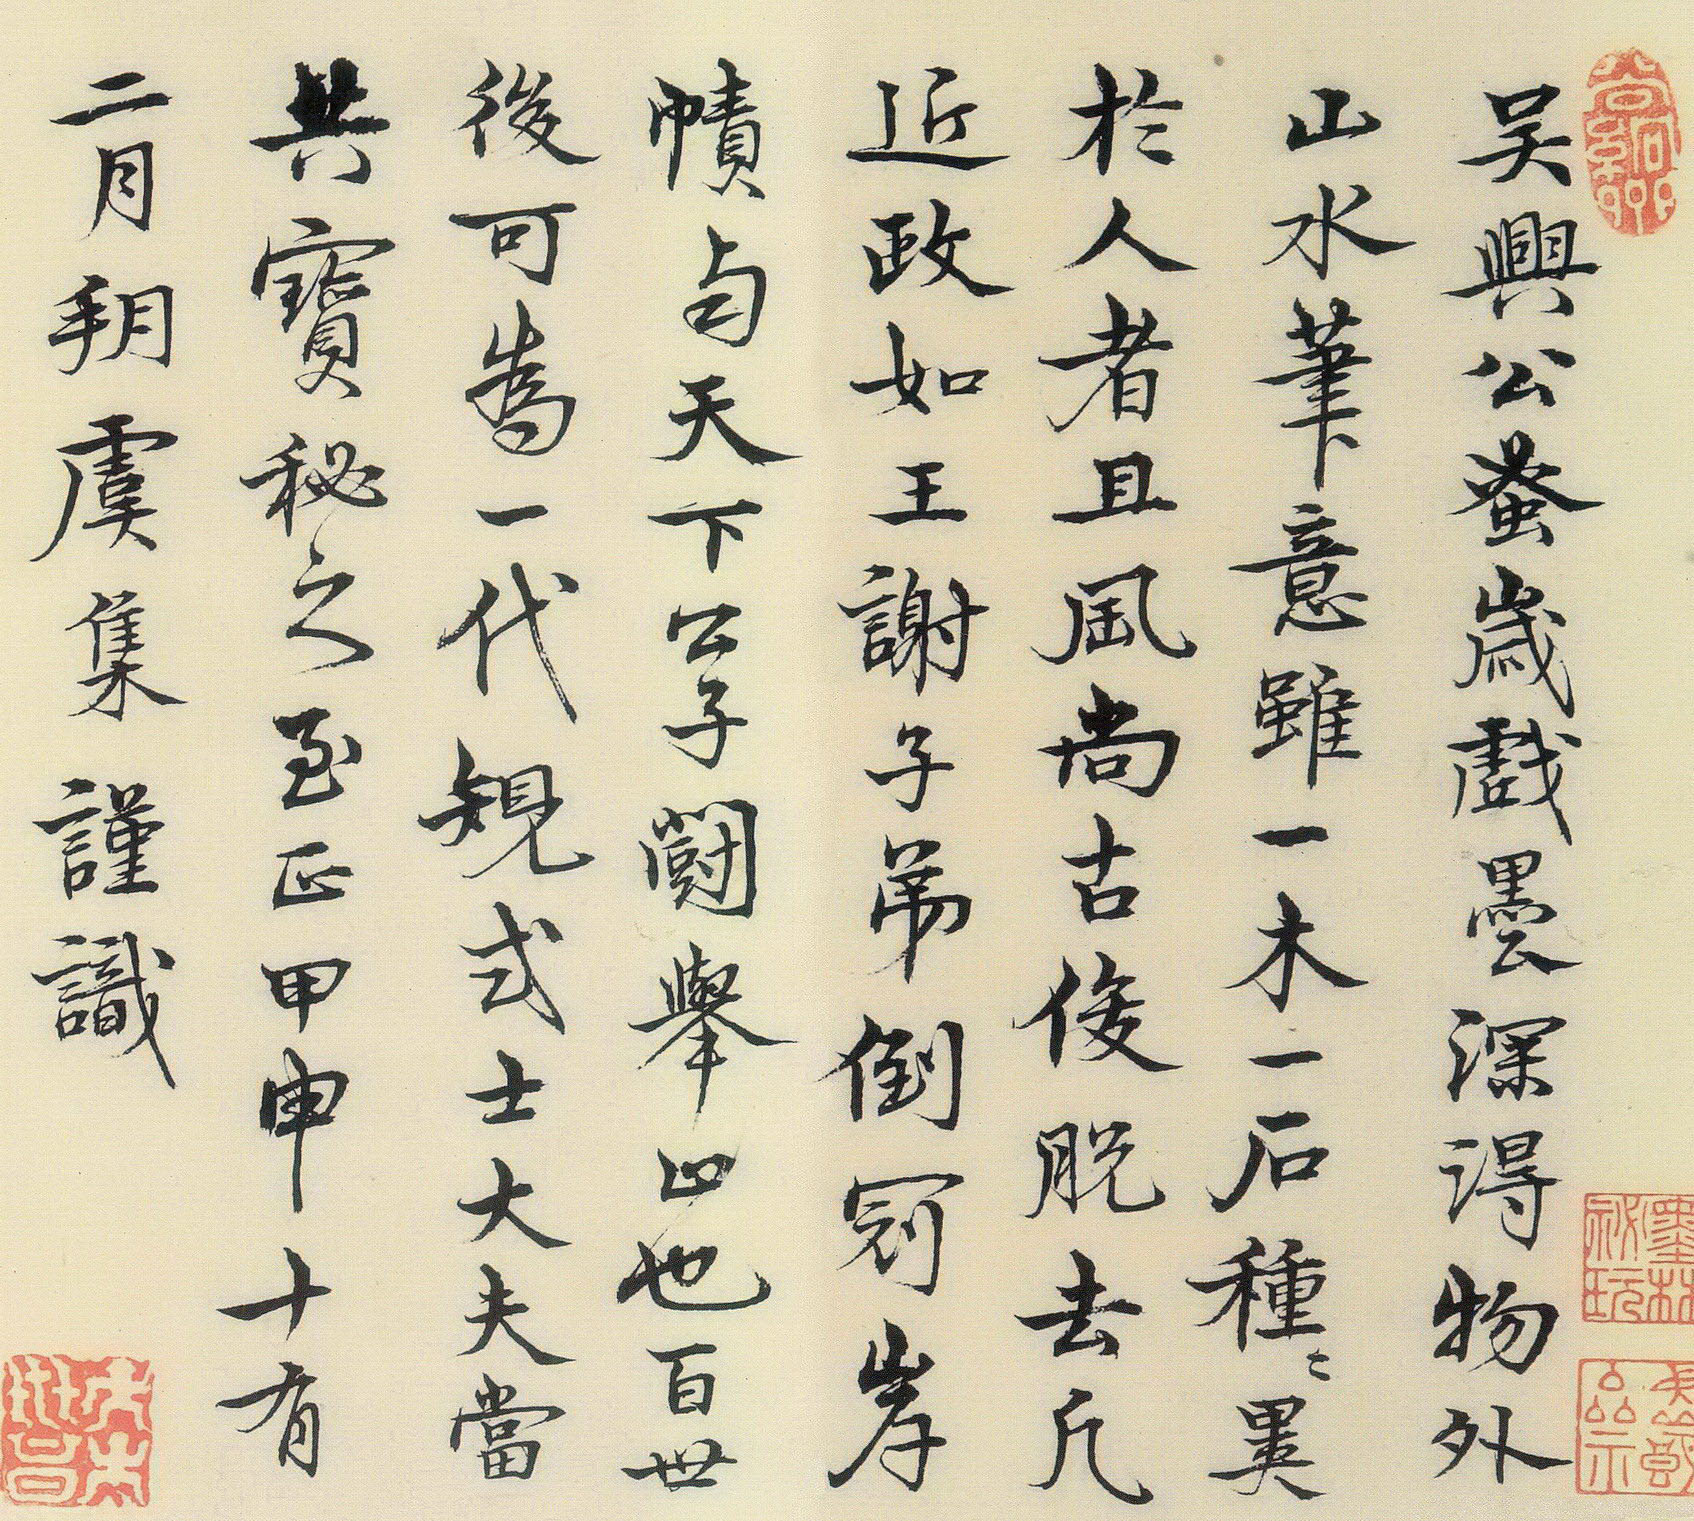 吴興公蚤歲戲墨深得物外
山水筆意雖一木一石種々異
於人者且風尚古俊脫去凡
近政如王謝子弟倒冠岸
幘与天下公子鬪舉止也百世
後可為一代規式士大夫當
共寶秘之至正甲申十有
二月朔虞集謹識
墨林秘玩